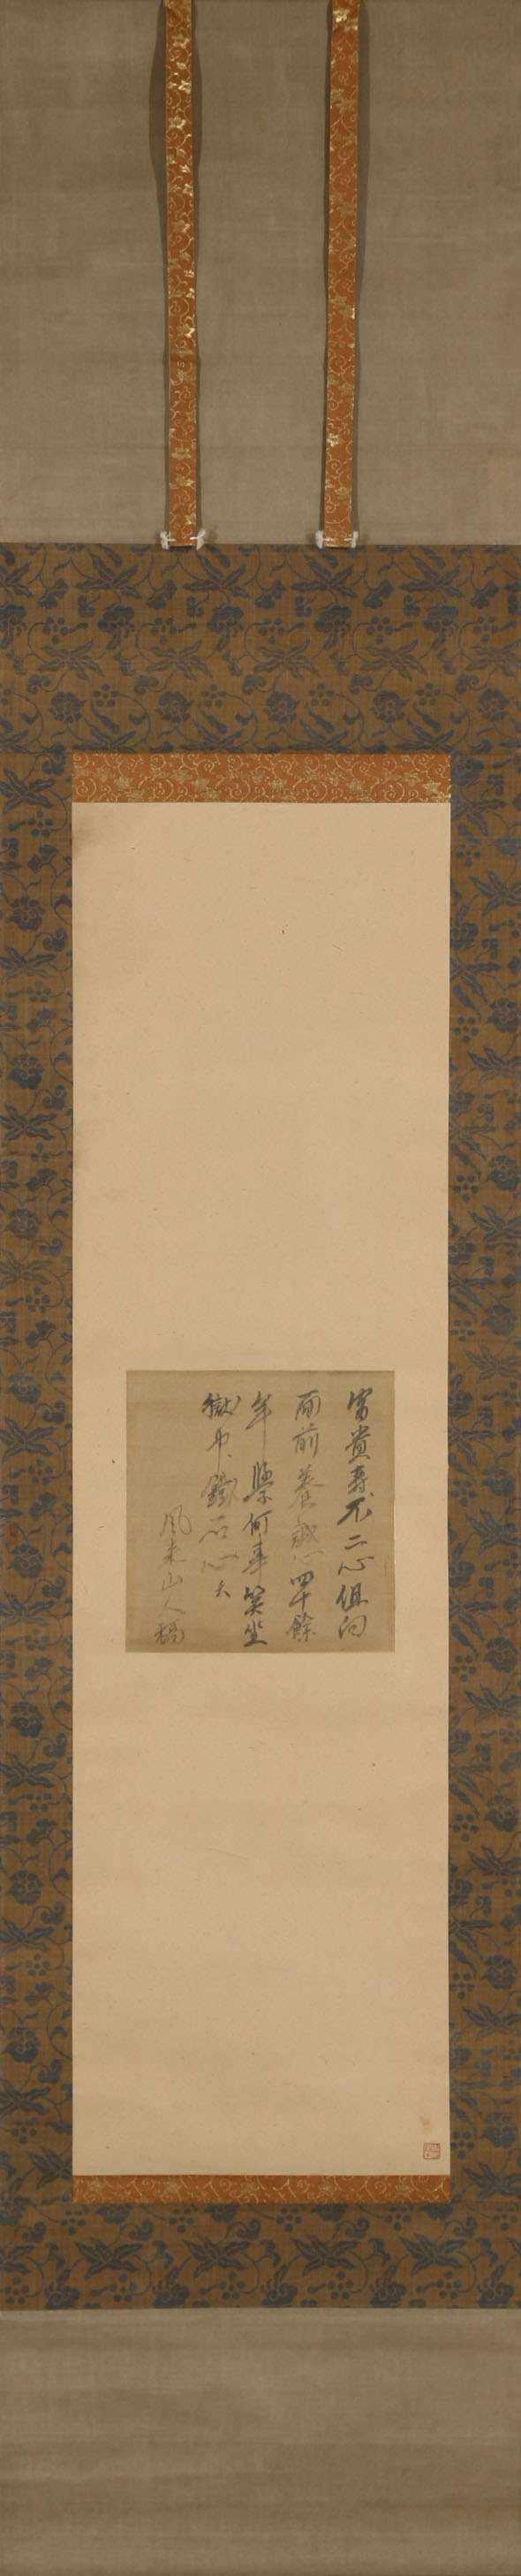 富貴壽不二心但向
面前養誠心四十餘
年學何事笑坐
獄中鐵石心
風来山人稿